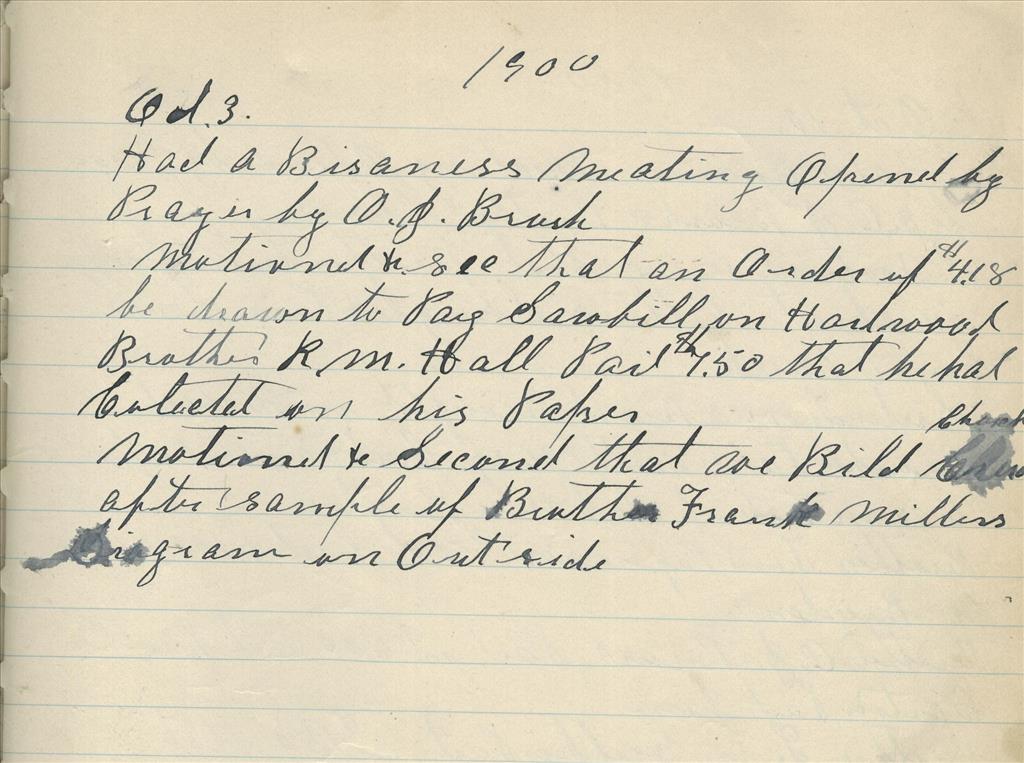 1900
Oct. 3.
Had a Bisaness Meating Opend by
Prayer by O. J. Brush
Motiond & see that an Order of $4.18
be drawn to Pay Sawbill, on Hardwood
Brother R. M. Hall Paid $7.50 that he had
Colected on his Paper
Church
Motiond & Second that we Bild
after sample of Brother Frank Millers
Diagram on Outside